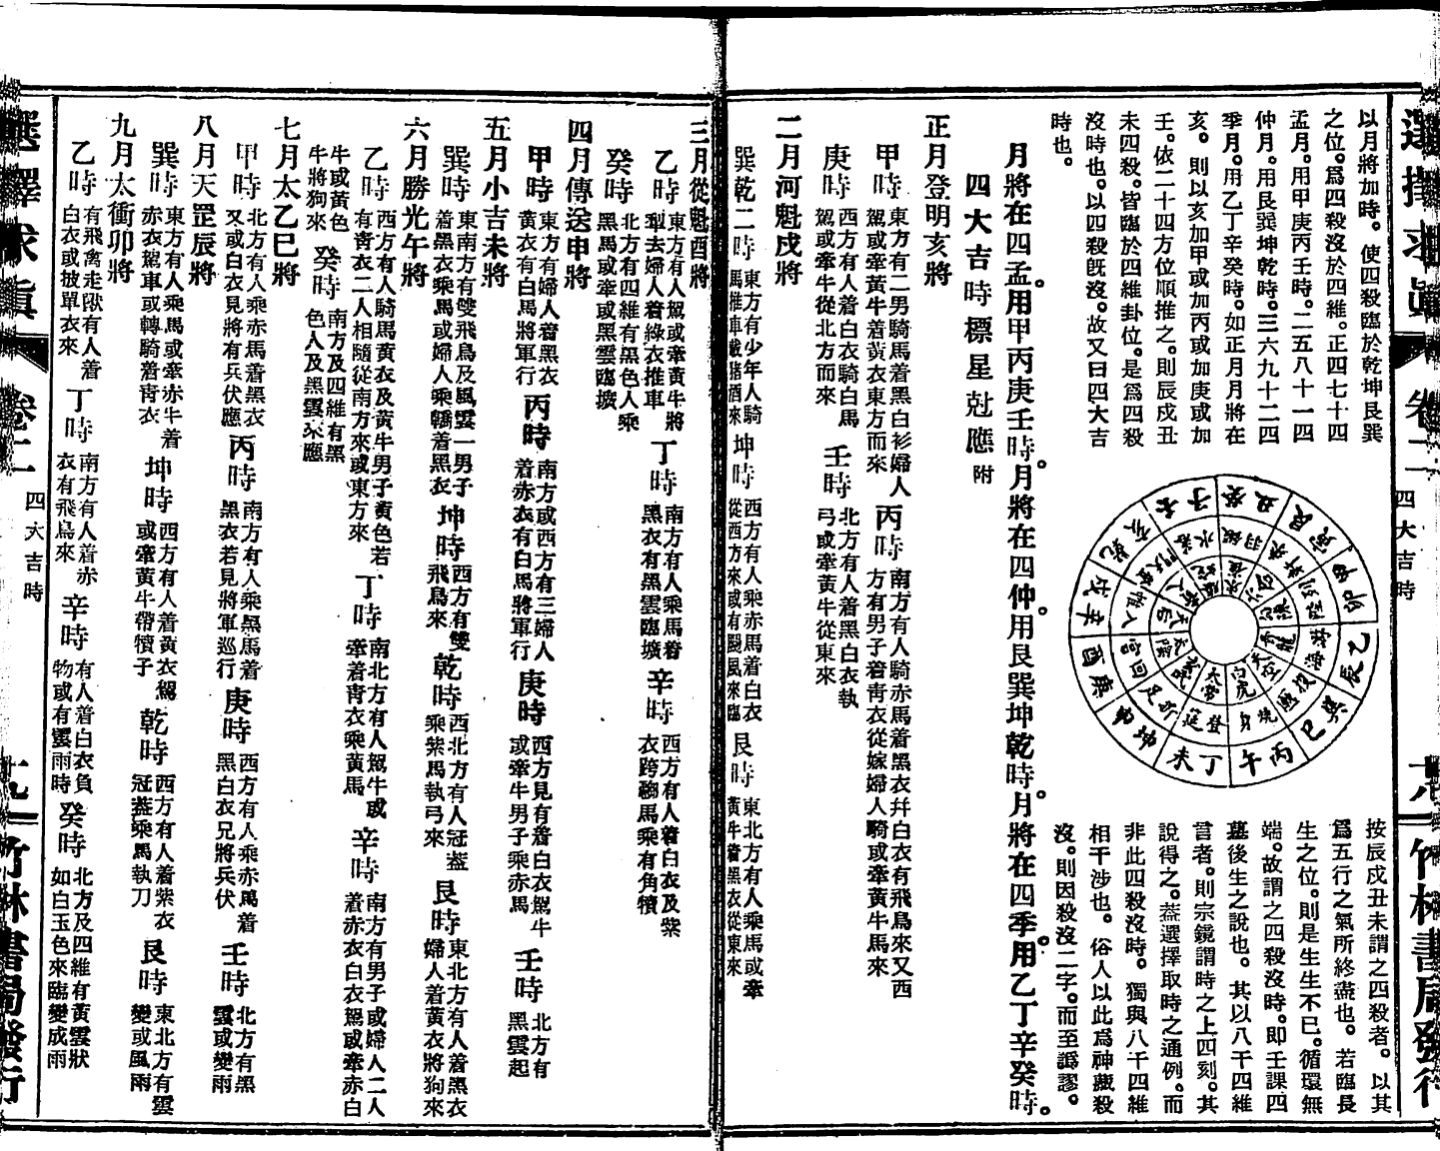 選擇求眞 卷二 四大吉時 十八 竹林書局發行
以月將加時。使四殺臨於乾坤艮巽
之位。爲四殺沒於四維。正四七十四
孟月。用甲庚丙壬時。二五八十一四
仲月。用艮巽坤乾時。三六九十二四
季月。用乙丁辛癸時。如正月月將在
亥。則以亥加甲或加丙或加庚或加
壬。依二十四方位順推之。則辰戌丑
未四殺。皆臨於四維卦位。是爲四殺
沒時也。以四殺旣沒。故又曰四大吉
時也。
壬子 癸丑 艮寅 甲卯 乙辰 巽巳 丙午 丁未 坤申 庚酉 辛戌 乾亥
按辰戌丑未謂之四殺者。以其
爲五行之氣所終盡也。若臨長
生之位。則是生生不已。循環無
端。故謂之四殺沒時。卽壬課四
墓後生之說也。其以八干四維
言者。則宗鏡謂時之上四刻。其
說得之。蓋選擇取時之通例。而
非此四殺沒時。獨與八干四維
相干涉也。俗人以此爲神藏殺
沒。則因殺沒二字。而至譌謬。
月將在四孟。用甲丙庚壬時。月將在四仲。用艮巽坤乾時。月將在四季。用乙丁辛癸時。
四大吉時標星尅應 附
正月登明亥將
甲時 東方有二男騎馬着黑白衫婦人駕或牽黃牛着黃衣東方而來 丙時 南方有人騎赤馬着黑衣幷白衣有飛鳥來又西方有男子着靑衣從嫁婦人騎或牽黃牛馬來
庚時 西方有人着白衣騎白馬駕或牽牛從北方而來 壬時 北方有人着黑白衣執弓或牽黃牛從東來
二月河魁戌將
巽乾二時 東方有少年人騎馬推車載猪酒來 坤時 西方有人乘赤馬着白衣從西方來或有颶風來臨 艮時 東北方有人乘馬或牽黃牛着黑衣從東來
三月從魁酉將
乙時 東方有人駕或牽黃牛將犁去婦人着綠衣推車 丁時 南方有人乘馬着黑衣有黑雲臨壙 辛時 西方有人着白衣及紫衣跨騶馬乘有角犢
癸時 北方有四維有黑色人乘黑馬或牽或黑雲臨壙
四月傳送申將
甲時 東方有婦人着黑衣黃衣有白馬將軍行 丙時 南方或西方有三婦人着赤衣有白馬將軍行 庚時 西方見有着白衣駕牛或牽牛男子乘赤馬 壬時 北方有黑雲起
五月小吉未將
巽時 東南方有雙飛鳥及風雲一男子着黑衣乘馬或婦人乘轎着黑衣 坤時 西方有雙飛鳥來 乾時 西北方有人冠蓋乘紫馬執弓來 艮時 東北方有人着黑衣婦人着黃衣將狗來
六月勝光午將
乙時 西方有人騎馬黃衣及黃牛男子黃色若有靑衣二人相隨從南方來或東方來 丁時 南北方有人駕牛或牽着靑衣乘黃馬 辛時 南方有男子或婦人二人着赤衣白衣駕或牽赤白
牛或黃色牛將狗來 癸時 南方及四維有黑色人及黑雲來應
七月太乙巳將
甲時 北方有人乘赤馬着黑衣又或白衣見將有兵伏應 丙時 南方有人乘黑馬着黑衣若見將軍巡行 庚時 西方有人乘赤馬着黑白衣兄將兵伏 壬時 北方有黑雲或變雨
八月天罡辰將
巽時 東方有人乘馬或牽赤牛着赤衣駕車或轉騎着靑衣 坤時 西方有人着黃衣駕或牽黃牛帶犢子 乾時 西方有人着紫衣冠蓋乘馬執刀 艮時 東北方有雲變或風雨
九月太衝卯將
乙時 有飛禽走獸有人着白衣或披單衣來 丁時 南方有人着赤衣有飛鳥來 辛時 有人着白衣負物或有雲雨時 癸時 北方及四維有黃雲狀如白玉色來臨變成雨
選擇求眞 卷二 四大吉時 十九 竹林書局發行